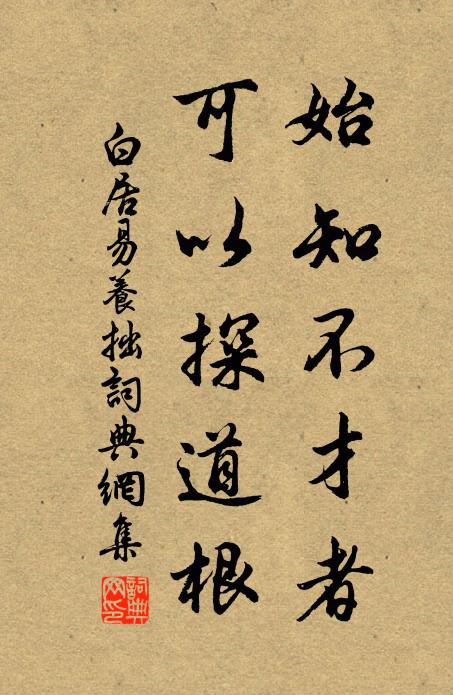 始知不才者
可以探道根
白居易養拙詞典網集
詞典网印